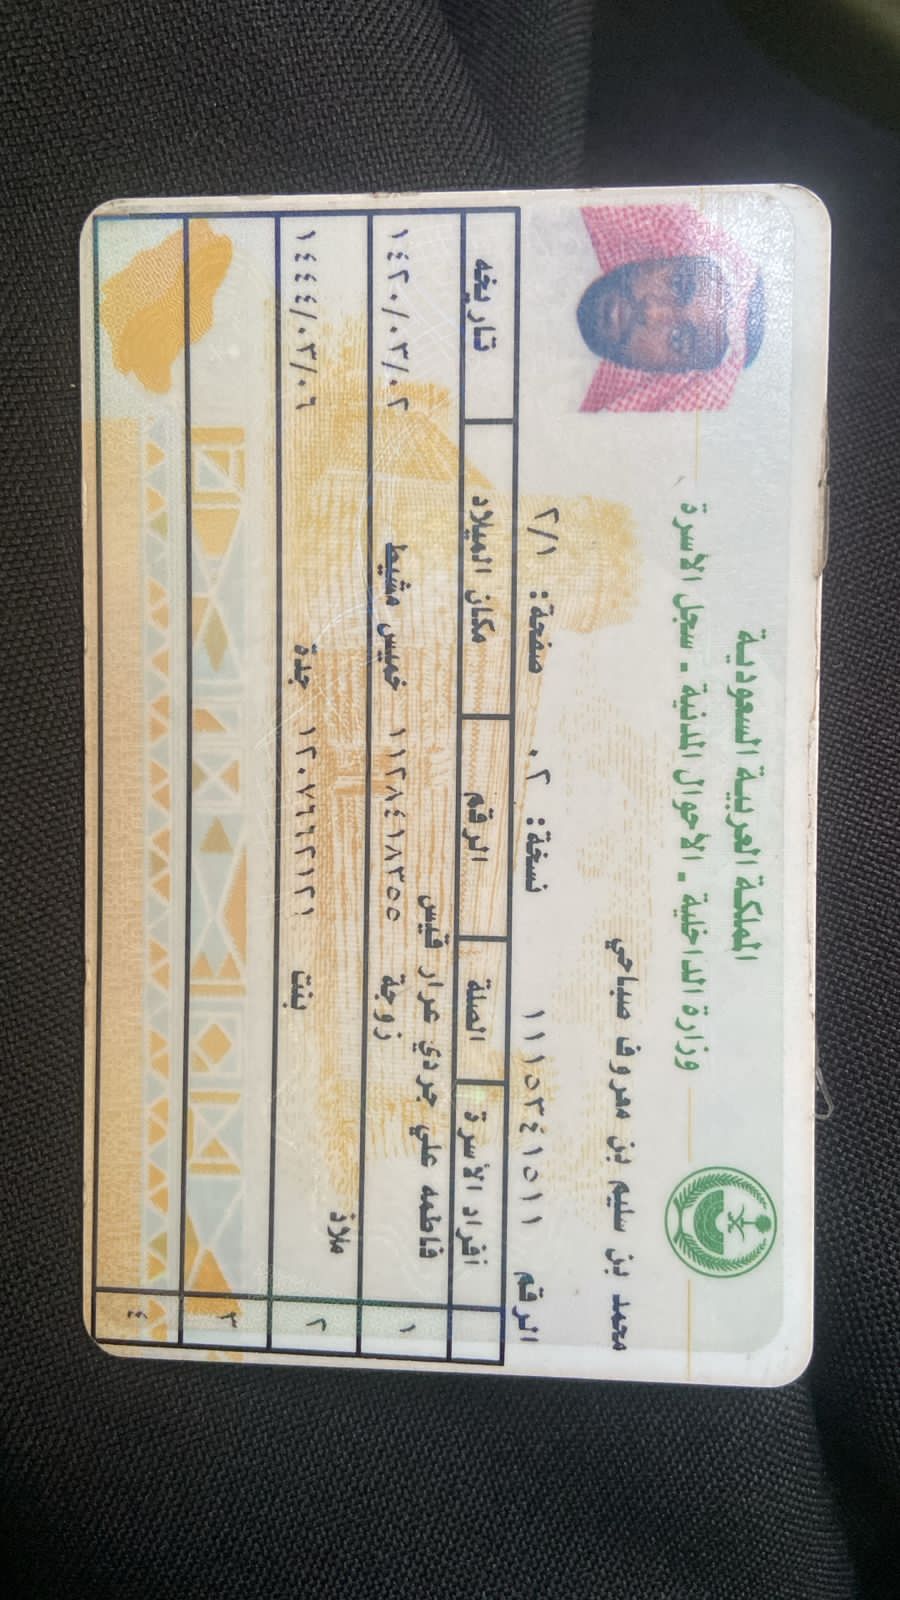 المملكة العربية السعودية
وزارة الداخلية . الأحوال المدنية . سجل الأسرة
محمد بن سليم بن معروف صباحي
الرقم ١١١٥٣٤١٥١١ نسخة: ٠٢ صفحة: ٢/١
أفراد الأسرة الصلة الرقم مكان الميلاد تاريخه
١ فاطمه علي جردي عرار قيس زوجة ١١٢٨٤١٨٣٥٥ خميس مشيط ١٤٢٠/٠٣/٠٢
٢ ملاذ بنت ١٢٠٧٦٦٢١٢١ جدة ١٤٤٤/٠٣/٠٦
٣
٤